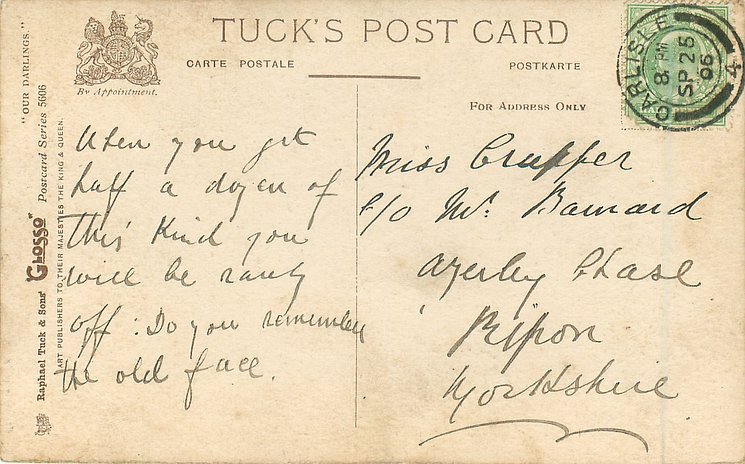 TUCK'S POST CARD
CARTE POSTALE
POSTKARTE
By Appointment.
For Address Only
"OUR DARLINGS."
Raphael Tuck & Sons' "Glosso" Postcard Series 5606
ART PUBLISHERS TO THEIR MAJESTIES THE KING & QUEEN.
CARLISLE
8 PM
SP 25
06
4
When you get
half a dozen of
this kind you
will be
off: Do you remember
the old face.
Miss Crapper
c/o Mr. Barnard
Azerley Chase
Ripon
Yorkshire